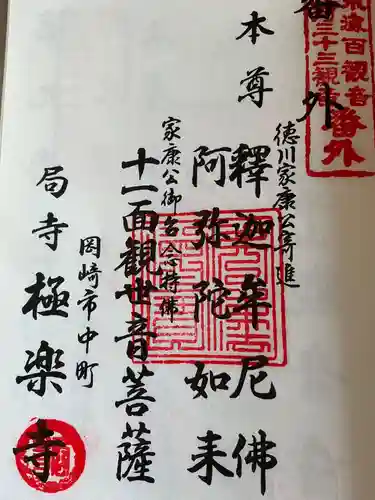 番外
東海百観音
三十三観音
番外
本尊
徳川家康公寄進
釋迦牟尼佛
阿弥陀如来
家康公御台念持佛
十一面観世音菩薩
岡崎市中町
局寺極楽寺